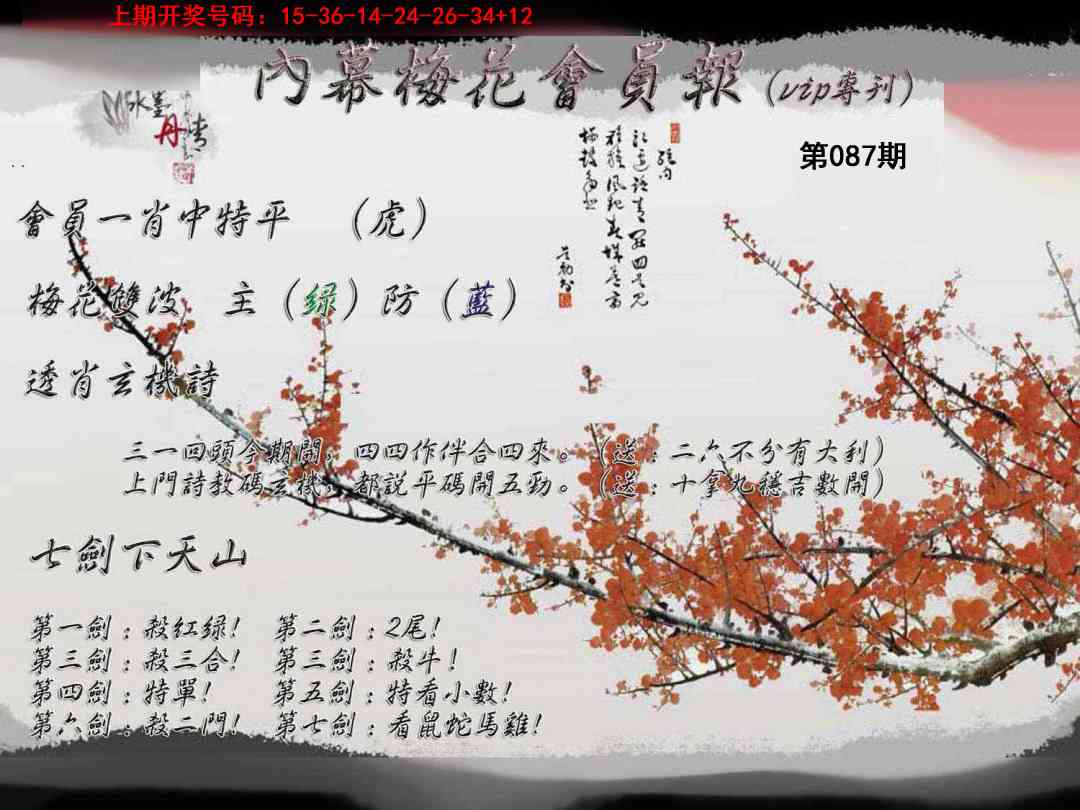 上期开奖号码：15-36-14-24-26-34+12
內幕梅花會員報(vip專刊)
水墨丹青
第087期
會員一肖中特平 （虎）
梅花雙波 主（緑）防（藍）
透肖玄機詩
三一回頭今期開，四四作伴合四來。（送：二六不分有大利）
上門詩教碼玄機，都説平碼開五勁。（送：十拿九穩吉數開）
七劍下天山
第一劍：殺紅緑！ 第二劍：2尾！
第三劍：殺三合！ 第三劍：殺牛！
第四劍：特單！ 第五劍：特看小數！
第六劍：殺二門！ 第七劍：看鼠蛇馬雞！